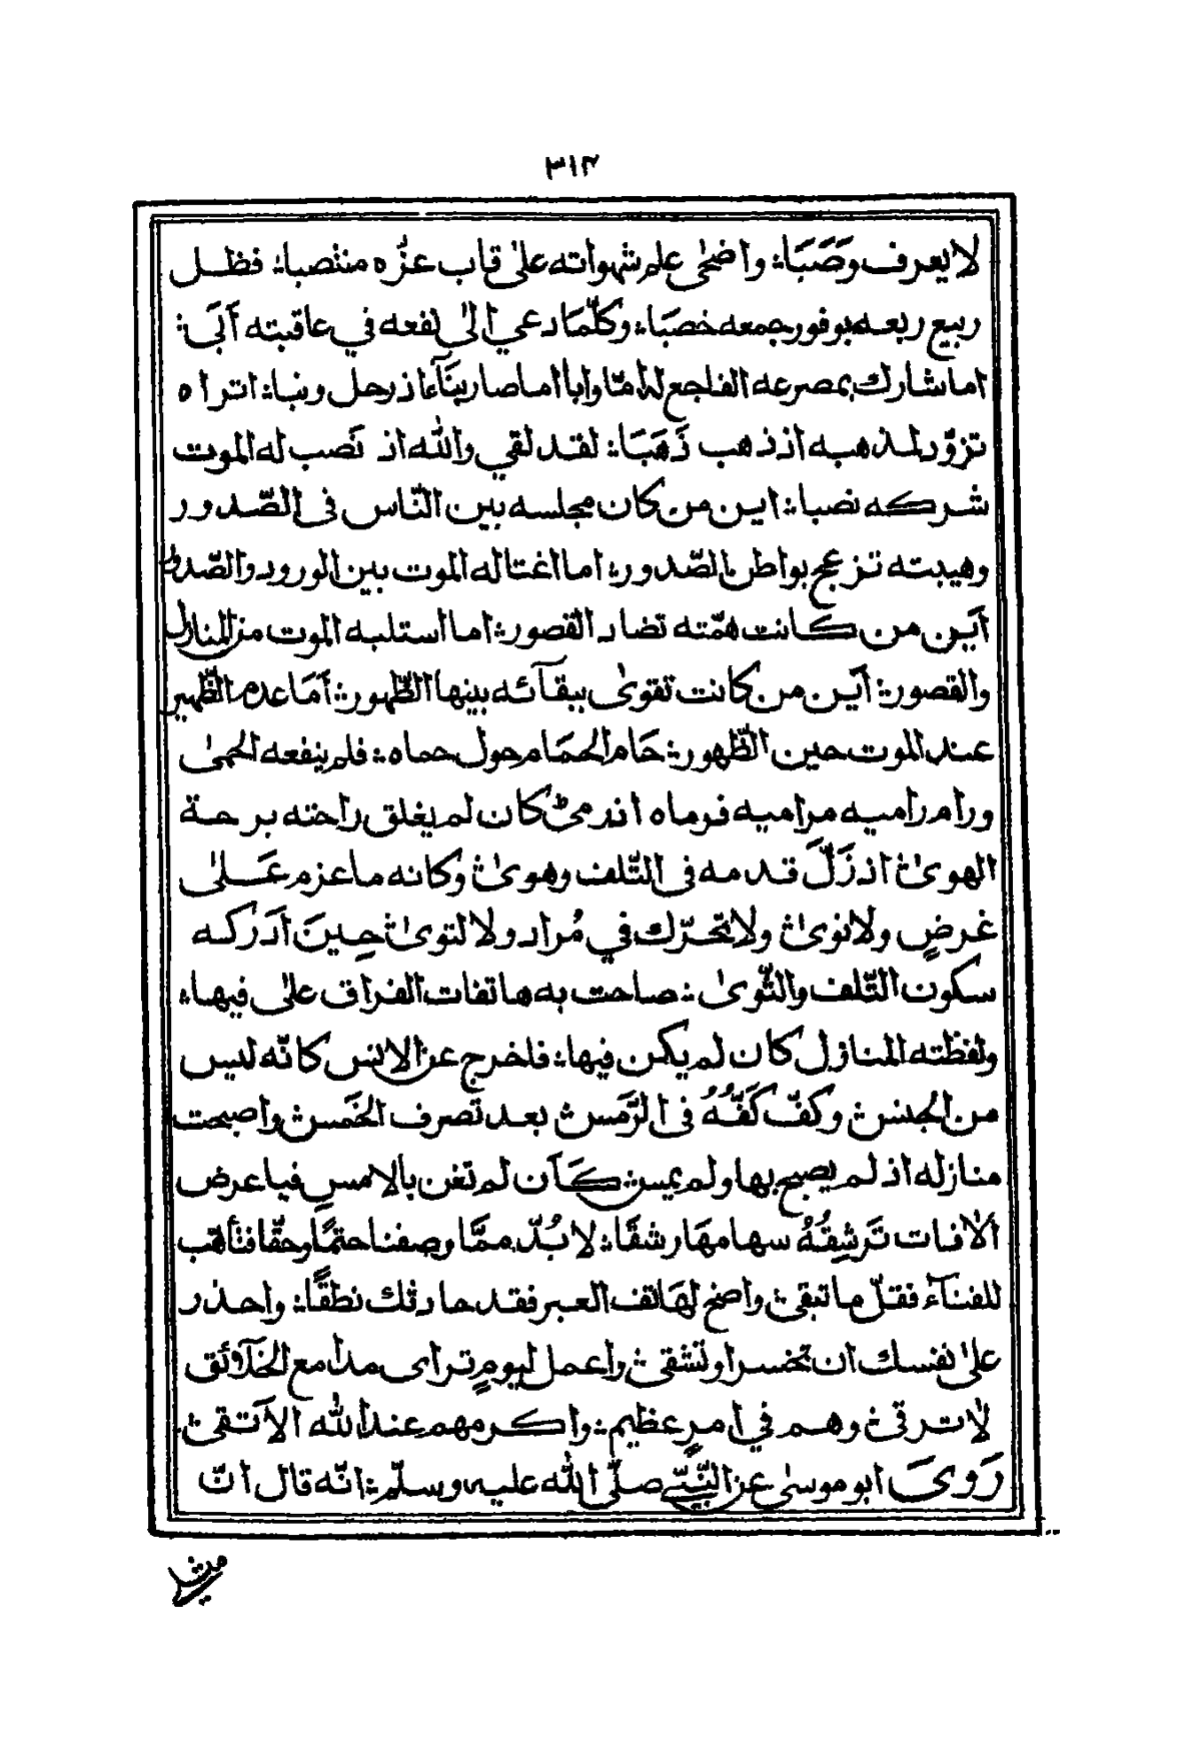 ٣١٢
لا يعرف وَصَبَا؛ واضحٰى علم شهواته علىٰ قاب عزّه منتصبا؛ فظل
ربيع ربعه بوفور جمعه خصَبَا؛ وكلّما دعي الىٰ نفعه في عاقبته أَبىَ؛
اما شارك بمصرعه الفاجع له امّا وابا اما صار بنَآءًا اذ رحل ونبا؛ اتراه
تزوّد لمذهبه اذ ذهب ذَهَبَا؛ لقد لقي والله اذ نَصب له الموت
شركه نصبا؛ اين من كان مجلسه بين النّاس فى الصّدور
وهيبته تزعج بواطن الصّدور؛ اما اغتاله الموت بين الورود والصّدور
أَين من كانت همّته تضاد القصور؛ اما استلبه الموت من المنازل
والقصور؛ أَين من كانت تقوىٰ ببقآئه بينها الظّهور؛ أَمَا عدم الظّهير
عند الموت حين الظّهور؛ حَام الحمَام حول حماه؛ فلم ينفعه الحمىٰ
ورام راميه مراميه فرماه اذ رمىٰ كان لم يغلق راحته برحة
الهوىٰ؛ اذ زَلَّ قدمه فى التّلف وهوىٰ؛ وكانه ما عزم عَلىٰ
غرضٍ ولا نوىٰ؛ ولا تحرّك في مُراد ولا التوىٰ؛ حِينَ أَدركه
سكون التّلف والتّوىٰ؛ صاحت به هاتفات الفراق علىٰ فيها؛
ولفظته المنازل كان لم يكن فيها؛ فاخرج عن الانس كانّه ليس
من الجنس؛ وكفّ كَفُّهُ فى الرَّمس؛ بعد تصرف الخَمس؛ واصبحت
منازله اذ لم يصبح بها ولم يمس؛ كَأَن لم تغن بالامسِ فيا عرض
الأفات تَرشِقُهُ سهامهَا رشقَا؛ لا بُدّ ممَّا وصفنا حتمًا وحقّا فتأهّب
للفنآء فقلّ ما تبقىٰ؛ واصخ لهَاتف العبر فقد حادثك نطقًا؛ واحذر
علىٰ نفسك ان تخسر او تشقىٰ؛ واعمل ليومٍ ترىٰ مدامع الخلآئق
لا ترقىٰ؛ وهم في امرٍ عظيم؛ واكرمهم عند الله الأتقىٰ؛
رَوىَ ابو موسىٰ عن النَّبىّ صلّى الله عليه وسلّم؛ انّه قال انّ